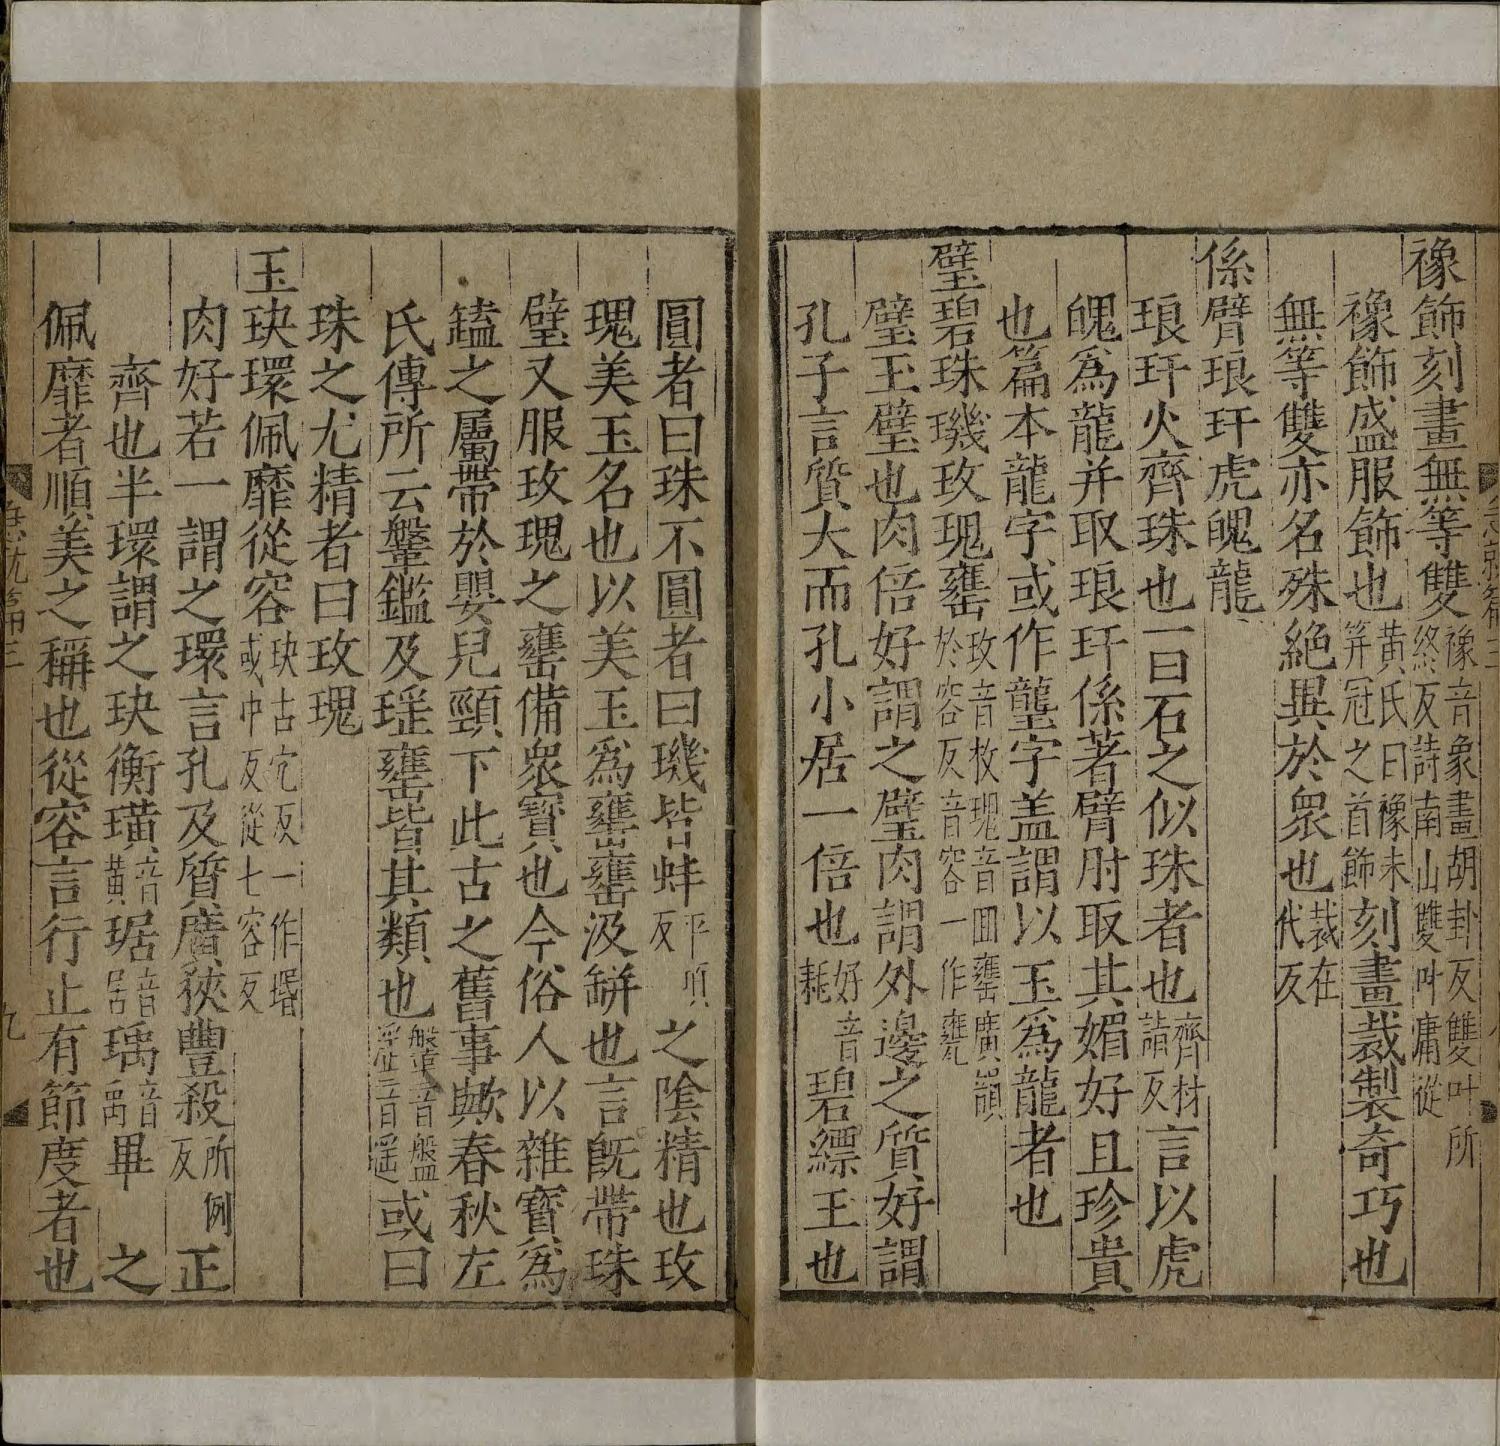 襐飾刻畫無等雙襐音象畫胡卦反雙叶所終反詩南山雙叶庸從
襐飾盛服飾也黃氏曰襐未笄冠之首飾刻畫裁製奇巧也
無等雙亦名殊絶異於衆也裁在代反
係臂琅玕虎魄龍
琅玕火齊珠也一曰石之似珠者也齊材詣反言以虎
魄爲龍并取琅玕係著臂肘取其媚好且珍貴
也篇本龍字或作蠪字盖謂以玉爲龍者也
璧碧珠璣玫瑰罋玫音枚瑰音回罋廣韻於容反音容一作甕
璧玉璧也肉倍好謂之璧肉謂外邊之質好謂
孔子言質大而孔小居一倍也好音耗碧縹玉也
圓者曰珠不圓者曰璣皆蚌平項反之陰精也玫
瑰美玉名也以美玉爲罋罋汲缾也言旣帶珠
璧又服玫瑰之罋備衆寳也今俗人以雜寳爲
𦈢之屬帶於嬰兒頸下此古之舊事歟春秋左
氏傳所云鞶鑑及瑶罋皆其類也鞶音盤瑶音遥或曰
珠之尤精者曰玫瑰
玉玦環佩靡從容玦古穴反一作琚或中反從七容反
肉好若一謂之環言孔及質廣狹豐殺所例反正
齊也半環謂之玦衡璜音黃琚音居瑀音禹畢之
佩靡者順美之稱也從容言行止有節度者也